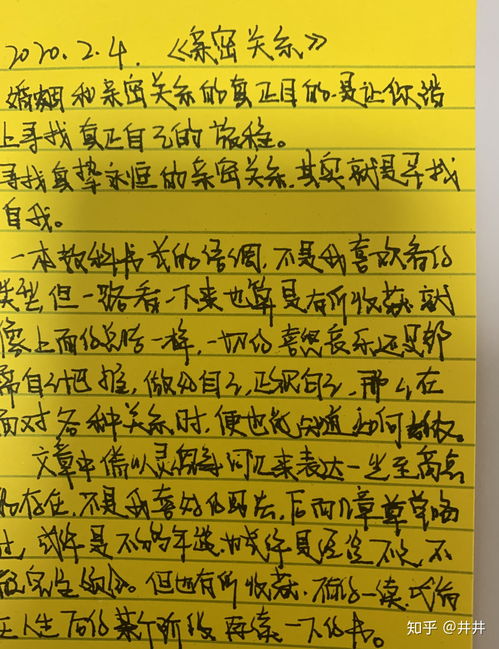 2020.2.4. 《亲密关系》
婚姻和亲密关系的真正目的.是让你踏
上寻找真正自己的旅程。
寻找真挚永恒的亲密关系.其实就是寻找
自我。
一本教科书式的语调.不是我喜欢看的
类型.但一路看一下来也算是有所收获.就
像上面的总结一样,一切的喜怒哀乐还是都
需自己把握,做好自己,正视自己,那么在
面对各种关系时,便也能知道如何
文章中借以灵 来表达一些至高点
的存在,不是我喜欢的 后面几章草草略
过,或许是不 年 或许是经 不
但也有所收获. 一读,
在人生后的某个阶段再读一下的书。
知乎 @井井